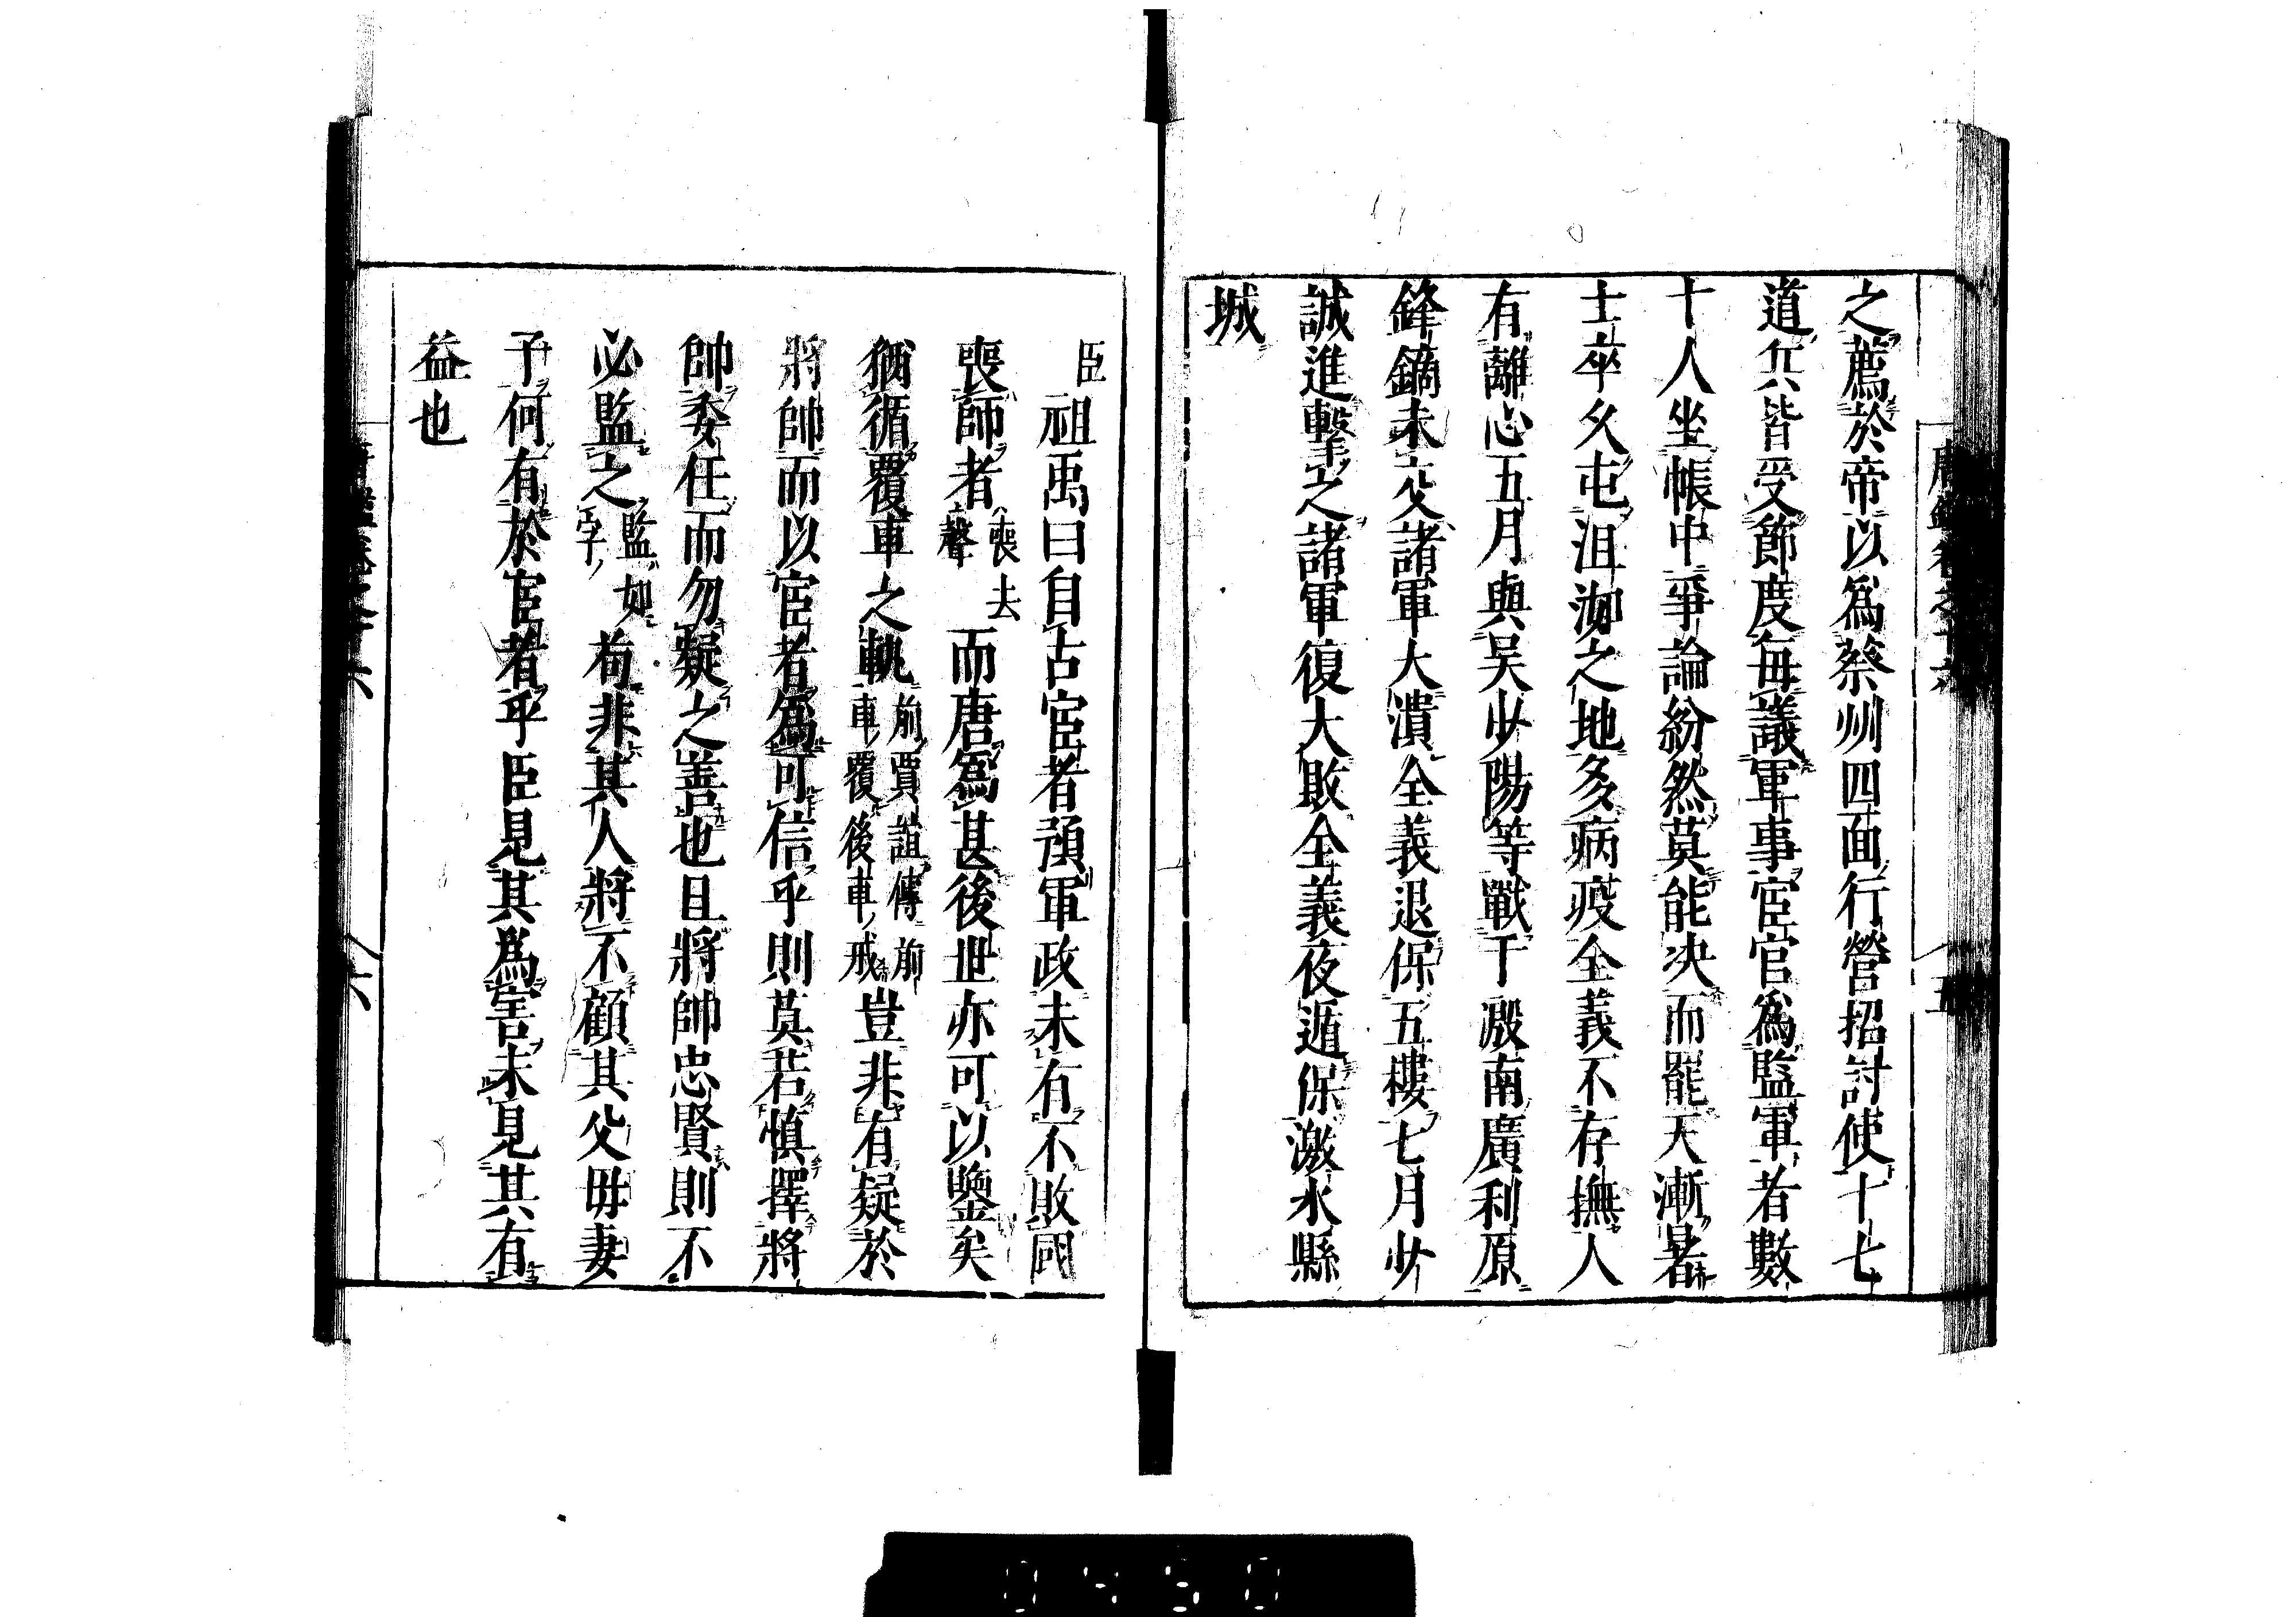 之薦於帝以爲蔡州四面行營招討使十七
道兵皆受節度每議軍事宦官爲監軍者數
十人坐帳中爭論紛然莫能决而罷天漸暑
士卒久屯沮洳之地多病疫全義不存撫人
有離心五月與吴少陽等戰于溵南廣利原
鋒鏑未交諸軍大潰全義退保五樓七月少
誠進擊之諸軍復大敗全義夜遁保溵水縣
城
臣祖禹曰自古宦者預軍政未有不敗國
喪師者喪去聲而唐爲甚後世亦可以鑒矣
猶循覆車之軌前賈誼傳前車覆後車戒豈非有疑於
將帥而以宦者爲可信乎則莫若慎擇將
帥委任而勿疑之善也且將帥忠賢則不
必監之監如字苟非其人將不顧其父母妻
子何有於宦者乎臣見其爲害未見其有
益也
0450